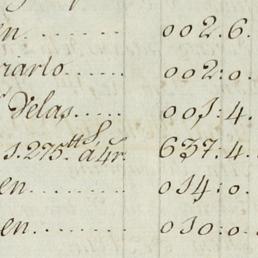 en...... 002.6.
riarlo...... 002:0.
Velas...... 001:4.
1.275 tt s. a 4r. 637:4.
en.......... 014:0.
en.......... 010:0.